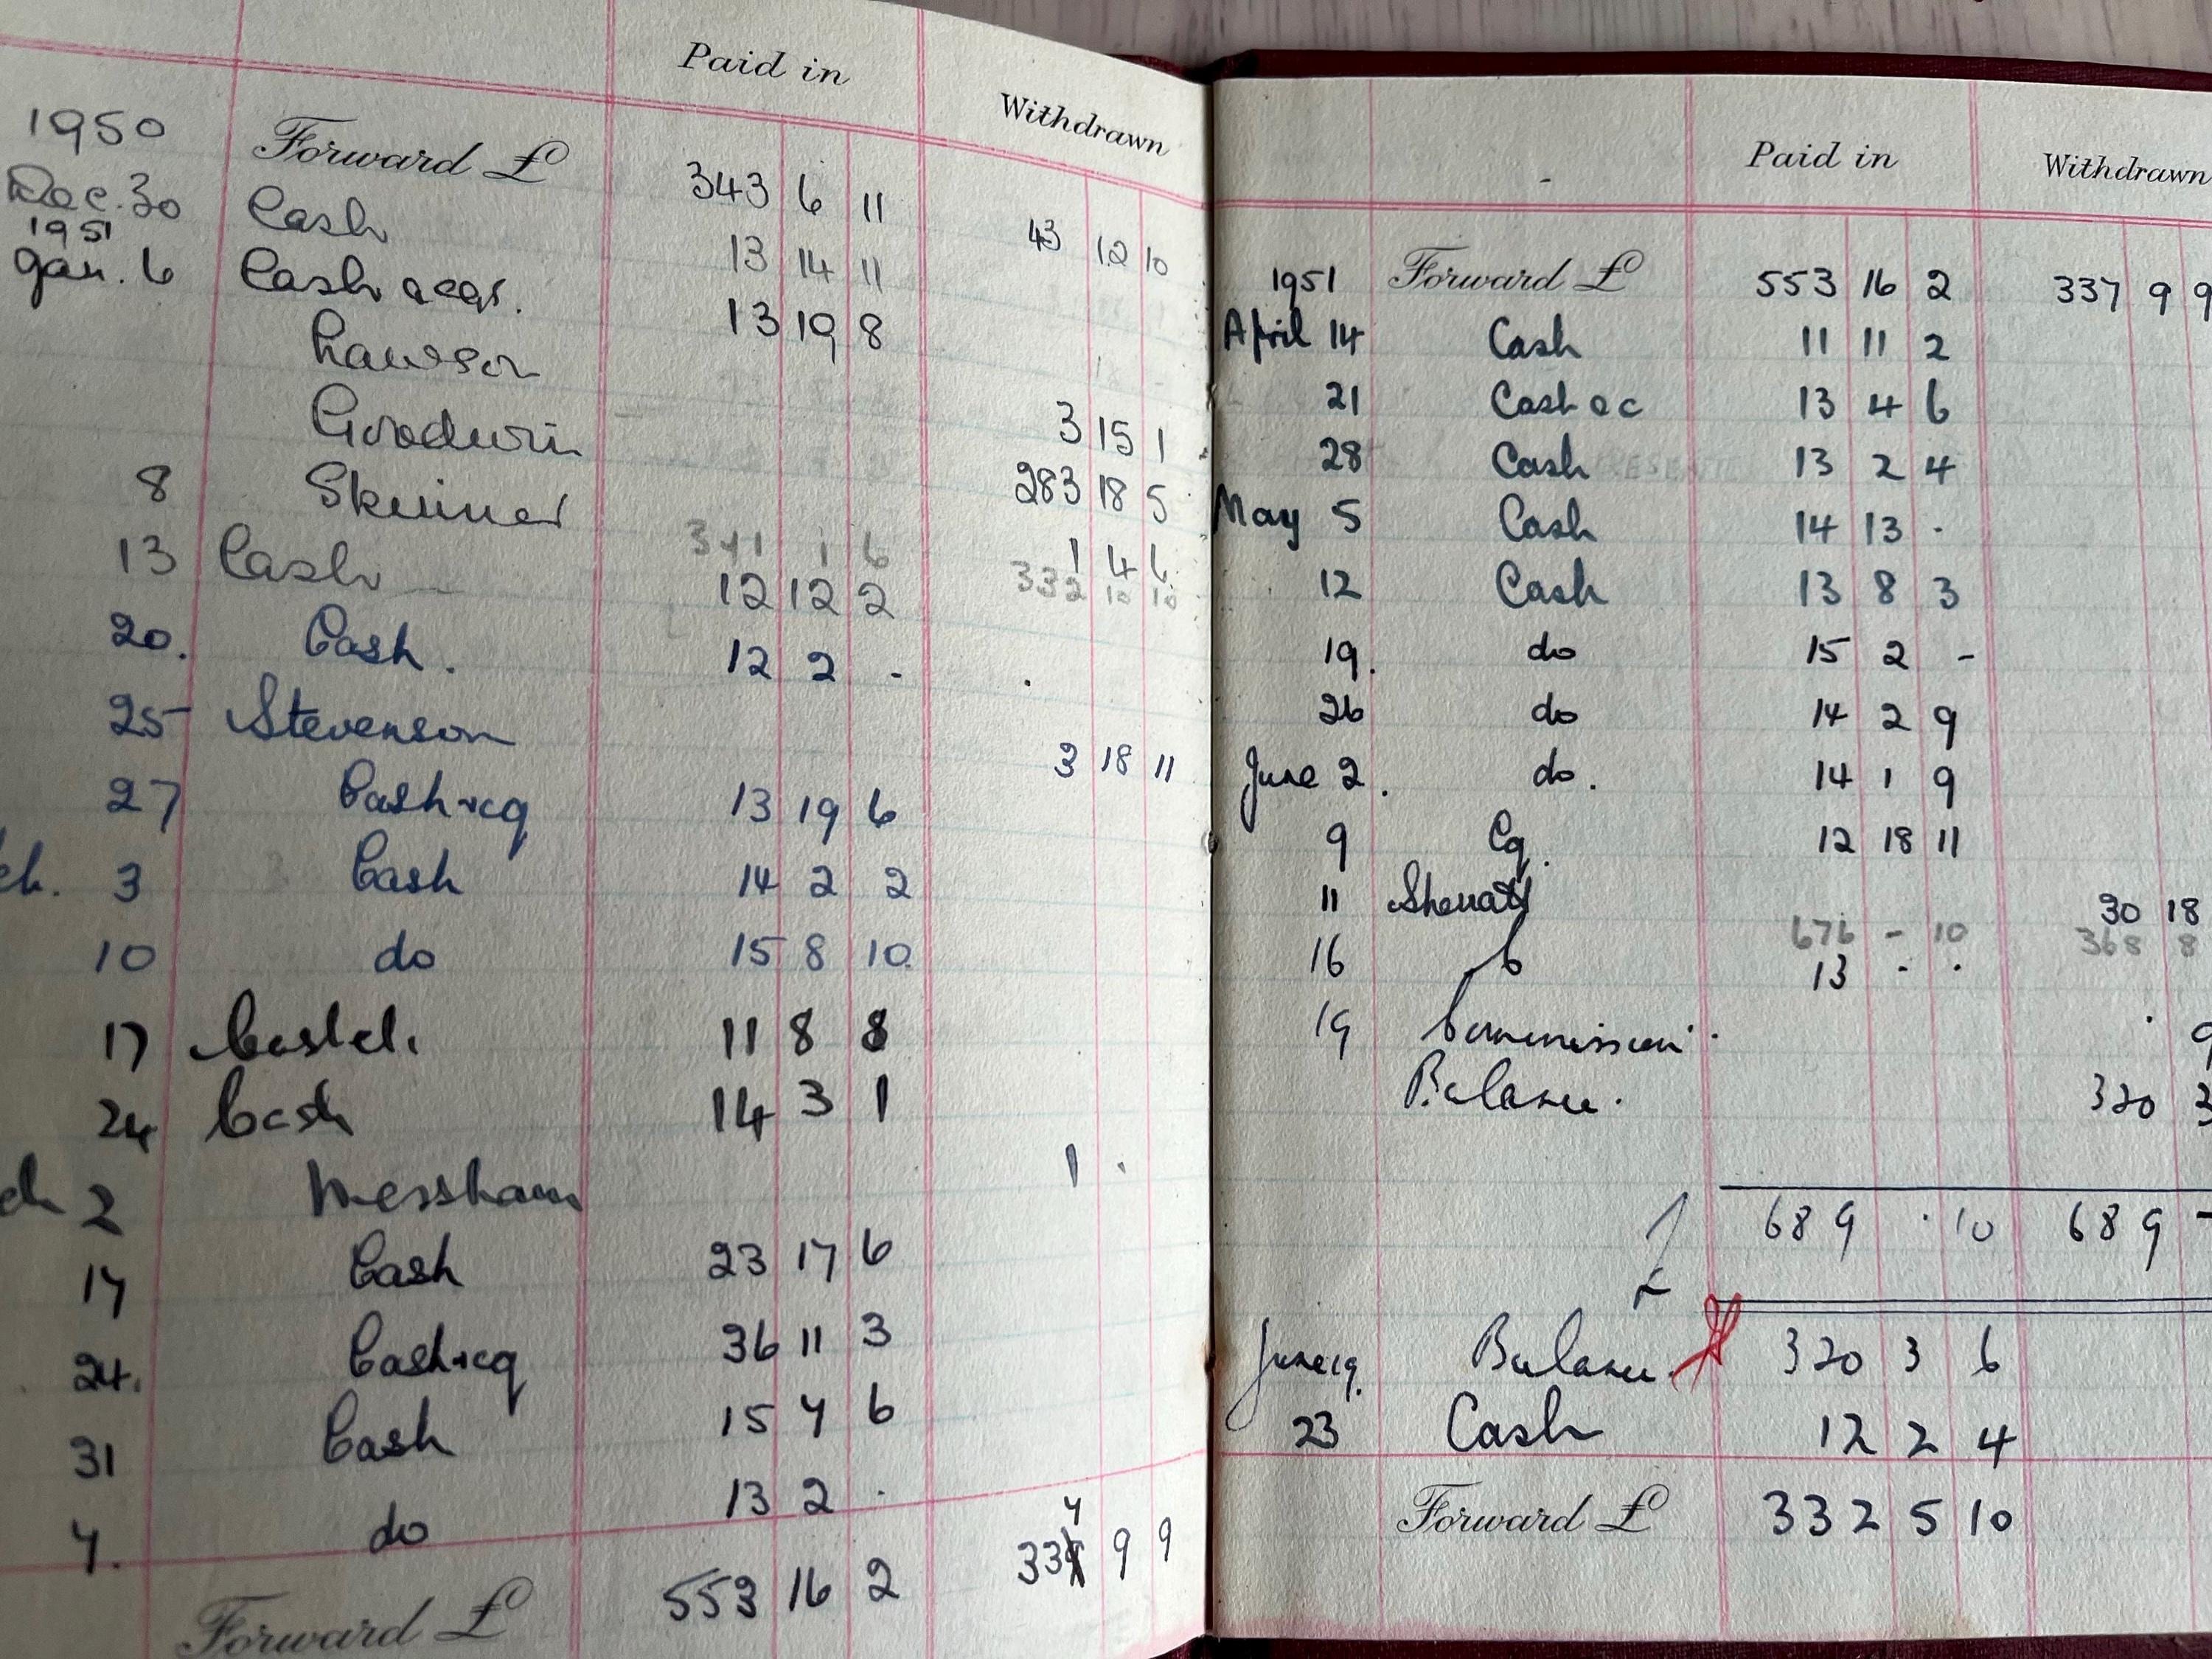 Paid in Withdrawn
1950 Forward £ 343 6 11 43 12 10
Dec. 30 Cash 13 14 11
1951
Jan. 6 Cash 13 19 8
Lawson 3 15 1
Goodwin 283 18 5
8 Skinner 1 4 6
341 1 6 332 10 10
13 Cash 12 12 2
20. Cash. 12 2 -
25 Stevenson 3 18 11
27 Cash + cq 13 19 6
3 Cash 14 2 2
10 do 15 8 10
17 11 8 8
24 Cash 14 3 1
2 Messham 1 .
17 Cash 23 17 6
24. Cash + cq 36 11 3
31 Cash 15 7 6
7. do 13 2 .
Forward £ 553 16 2 337 9 9
Paid in Withdrawn
1951 Forward £ 553 16 2 337 9 9
April 14 Cash 11 11 2
21 Cash 13 4 6
28 Cash 13 2 4
May 5 Cash 14 13 .
12 Cash 13 8 3
19. do 15 2 -
26 do 14 2 9
June 2. do. 14 1 9
9 Cq. 12 18 11
11 30 18
676 - 10 368 8
16 13 - .
19 Commission.
Balance. 320 3
689 . 10 689 -
June 19. Balance. 320 3 6
23 Cash 12 2 4
Forward £ 332 5 10